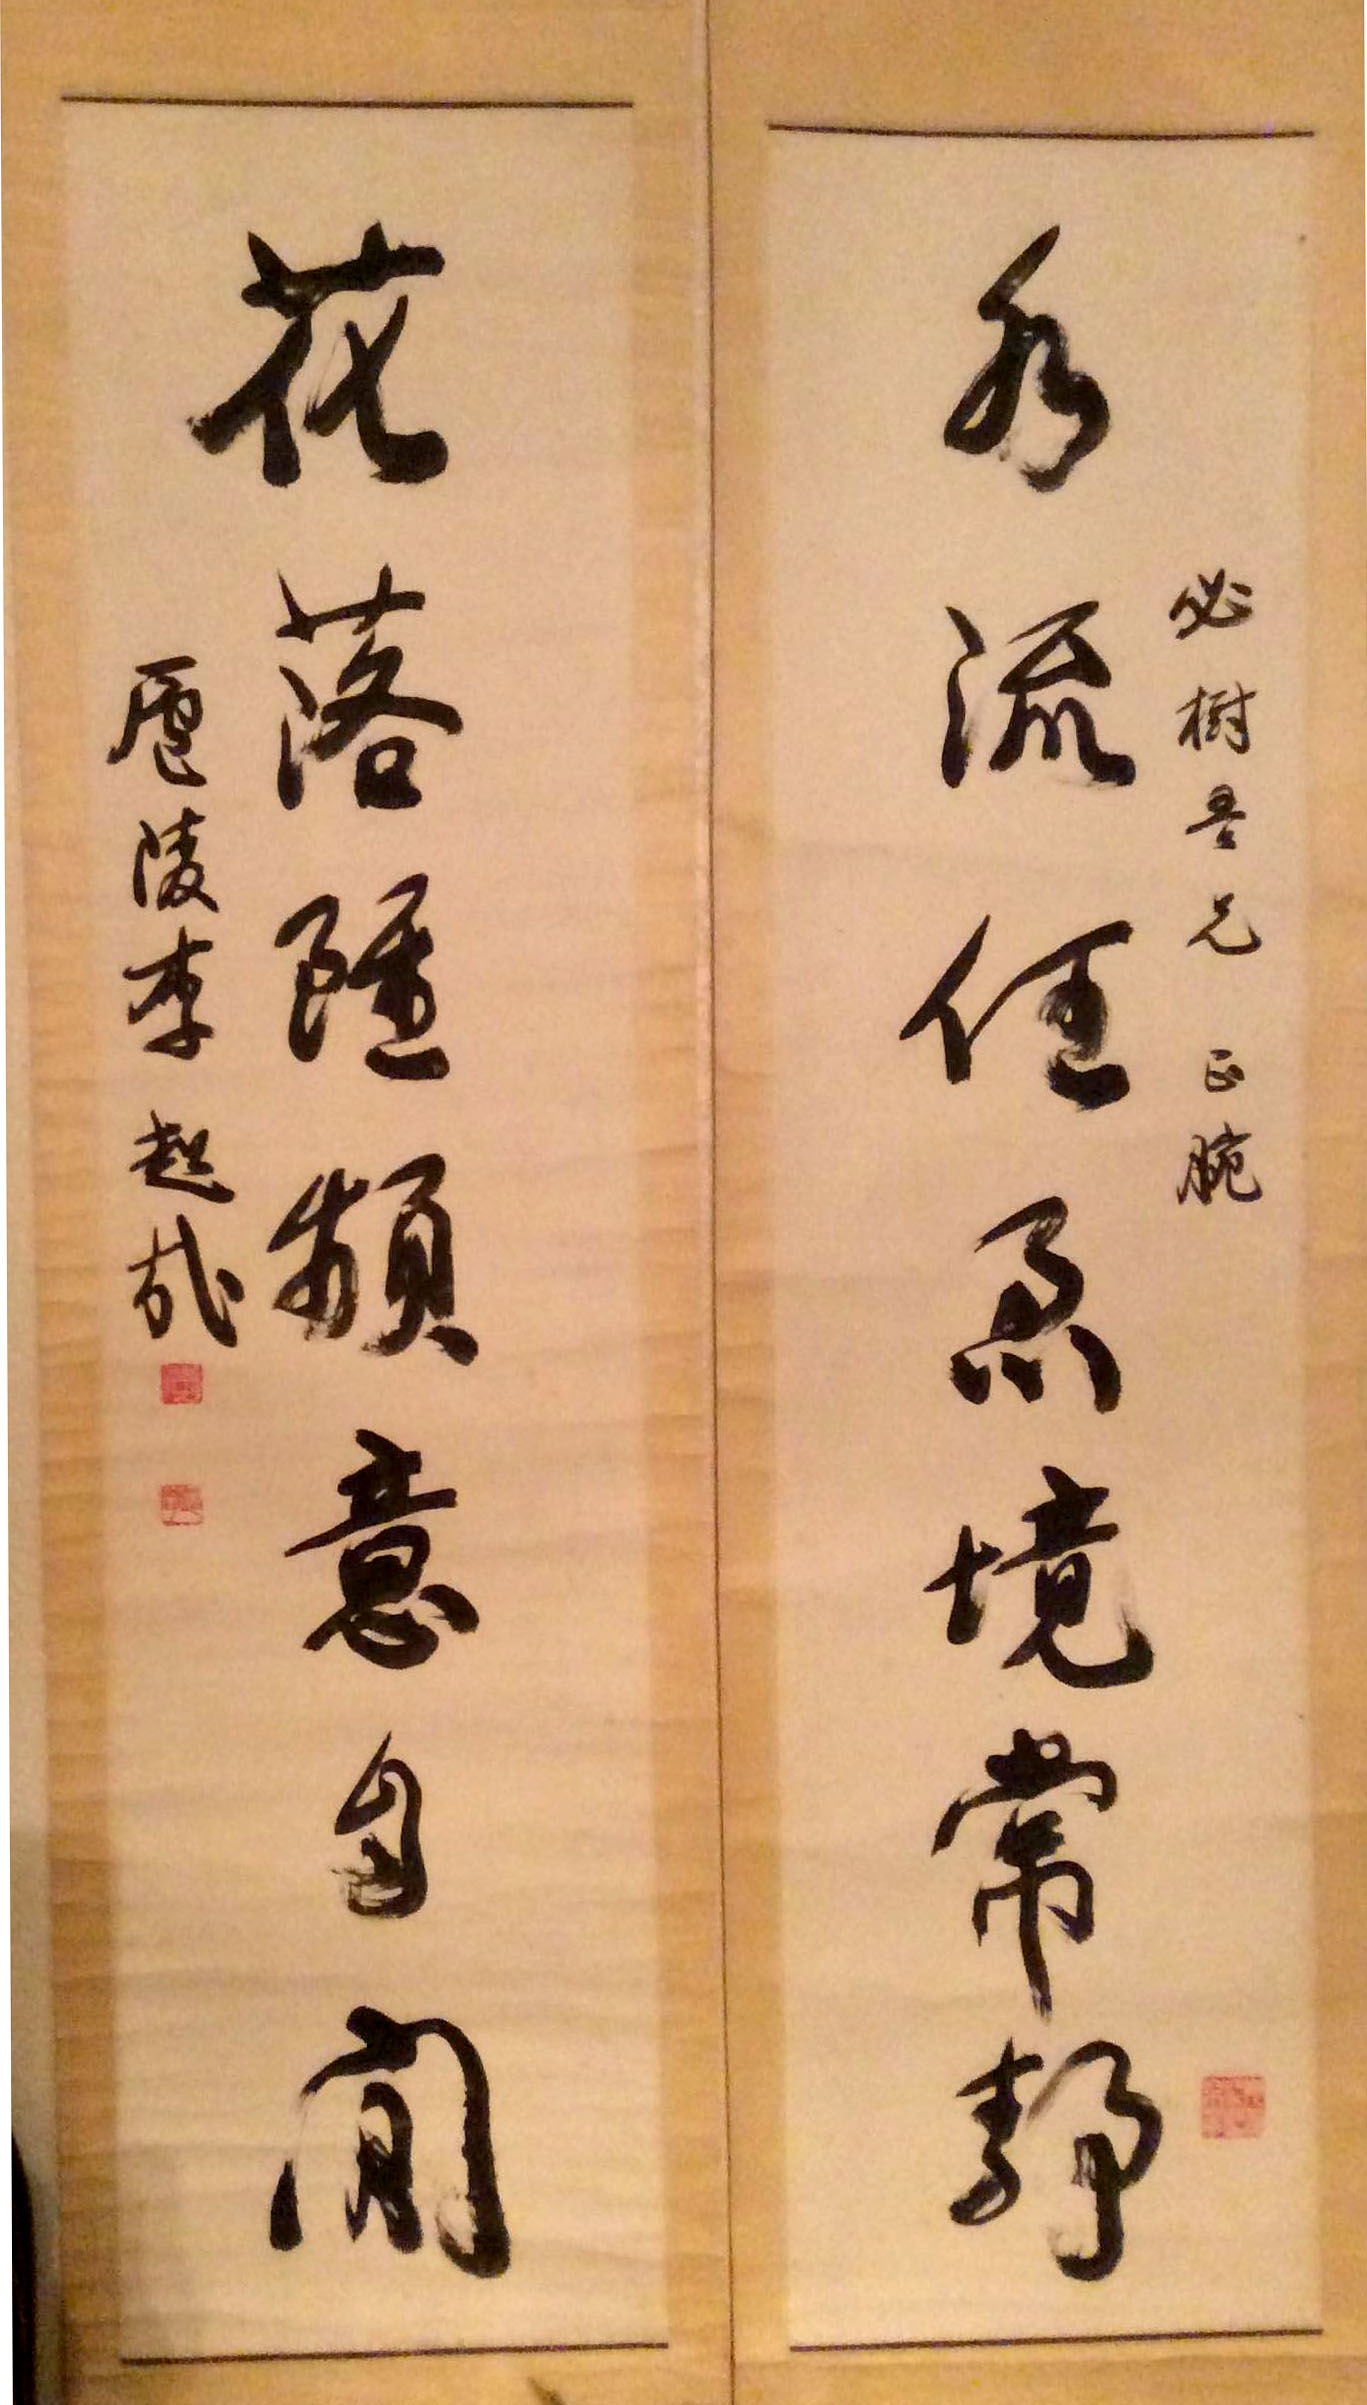 必樹吾兄 正腕
水流任急境常靜
花落雖頻意自閒
廬陵李超哉